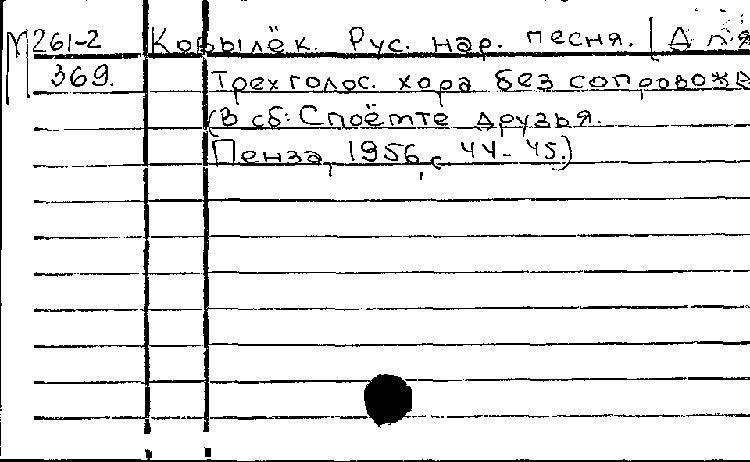 М261-2 Ковылёк. Рус. нар. песня. [Для
369. Трехголос. хора без сопровожд
(В сб: Споёмте друзья.
Пенза, 1956, с. 44-45.)